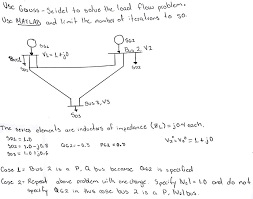 Use Gauss-Seidel to solve the load flow problem.
Use MATLAB and limit the number of iterations to 50.
SG1
SG2
Bus 1
V1 = 1 + j0
Bus 2, V2
SD1
SD2
Bus 3, V3
SD3
The series elements are inductors of impedance (ZL) = j0.4 each.
SD1 = 1.0
SD2 = 1.0 - j0.8
QG2 = -0.5
PG2 = 0.5
V2° = V3° = 1 + j0
SD3 = 1.0 + j0.6
Case 1 = Bus 2 is a P, Q bus because QG2 is specified
Case 2 = Repeat above problem with one change. Specify |V2| = 1.0 and do not
specify QG2 in this case bus 2 is a P, |V2| bus.